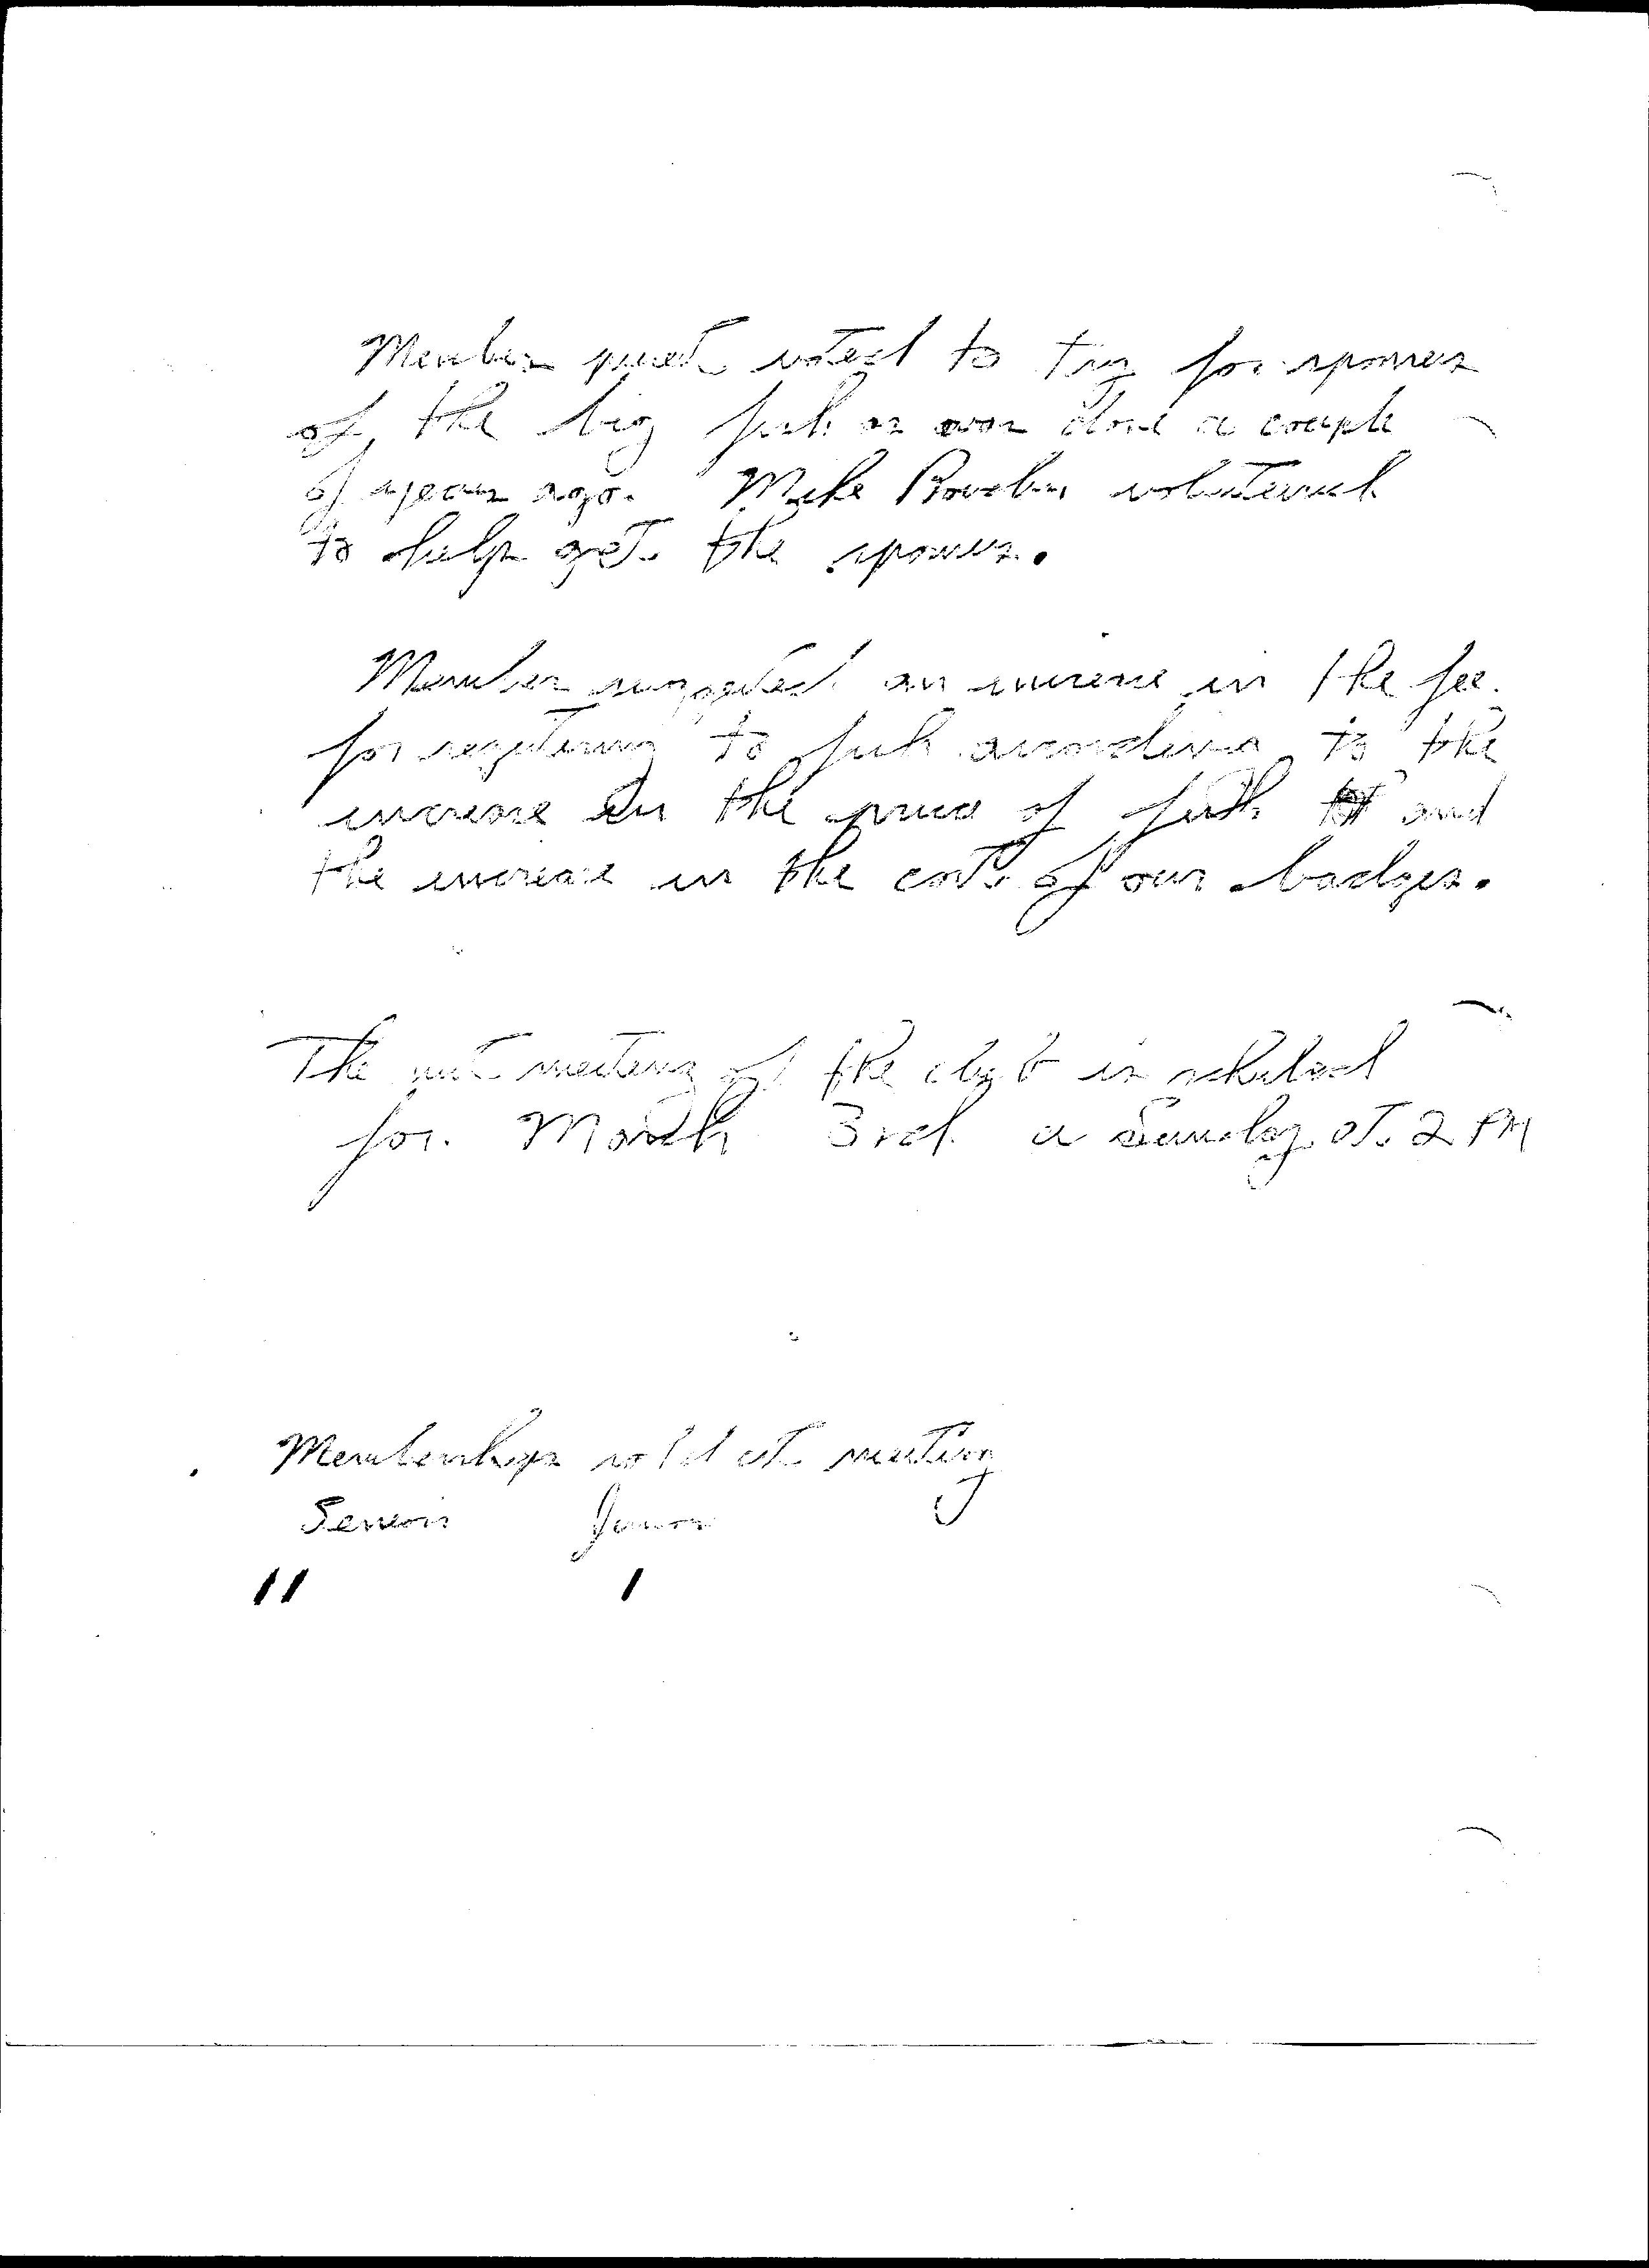 Members present voted to try for sponsors
of the big fish as was done a couple
of years ago. Mike volunteered
to help get the sponsors.
Members suggested an increase in the fee
for registering to fish according to the
increase in the price of fish and
the increase in the cost of our badges.
The next meeting of the club is scheduled
for March 3rd a Sunday at 2 PM
Memberships sold at meeting
Seniors Junior
11 1